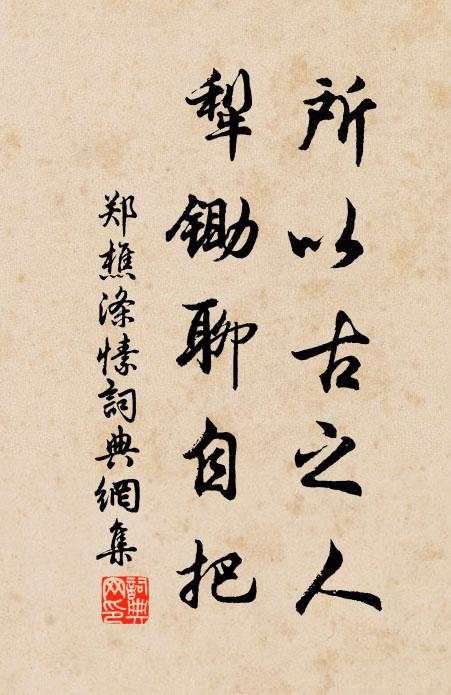 所以古之人
犁锄聊自把
郑樵涤愫詞典網集
詞典网印